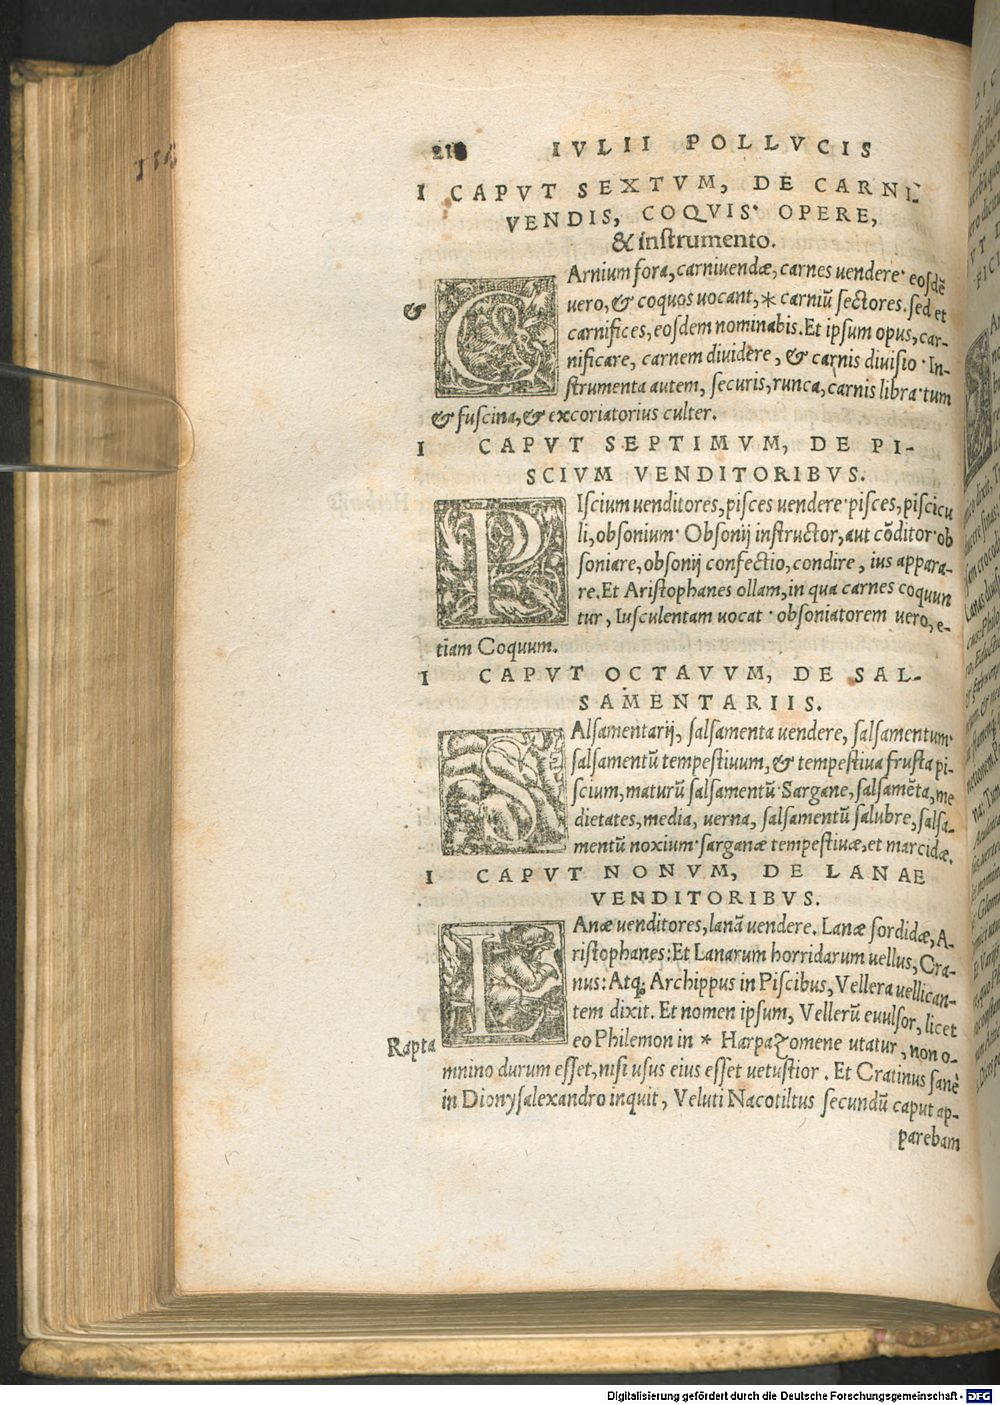 218 IVLII POLLVCIS
I CAPVT SEXTVM, DE CARNI-
VENDIS, COQVIS· OPERE,
& instrumento.
CArnium fora, carniuendæ, carnes uendere· eosdē
& uero, & coquos uocant, * carniū sectores. sed et
carnifices, eosdem nominabis. Et ipsum opus, car-
nificare, carnem diuidere, & carnis diuisio· In-
strumenta autem, securis, runca, carnis libra· tum
& fuscina, & excoriatorius culter.
I CAPVT SEPTIMVM, DE PI-
SCIVM VENDITORIBVS.
PIscium uenditores, pisces uendere· pisces, piscicu
li, obsonium· Obsonij instructor, aut cōditor· ob
soniare, obsonij confectio, condire, ius appara-
re. Et Aristophanes ollam, in qua carnes coquun
tur, Iusculentam uocat· obsoniatorem uero, e-
tiam Coquum.
I CAPVT OCTAVVM, DE SAL-
SAMENTARIIS.
SAlsamentarij, salsamenta uendere, salsamentum·
salsamentū tempestiuum, & tempestiua frusta pi-
scium, maturū salsamentū· Sargane, salsamēta, me
dietates, media, uerna, salsamentū salubre, salsa-
mentū noxium· sarganæ tempestiuæ, et marcidæ.
I CAPVT NONVM, DE LANAE
VENDITORIBVS.
LAnæ uenditores, lanā uendere. Lanæ sordidæ, A-
ristophanes: Et Lanarum horridarum uellus, Cra-
nus: Atq; Archippus in Piscibus, Vellera uellican-
tem dixit. Et nomen ipsum, Vellerū euulsor, licet
Rapta eo Philemon in * Harpazomene utatur, non o-
mnino durum esset, nisi usus eius esset uetustior. Et Cratinus sanè
in Dionysalexandro inquit, Veluti Nacotiltus secundū caput ap-
parebam
Digitalisierung gefördert durch die Deutsche Forschungsgemeinschaft - DFG